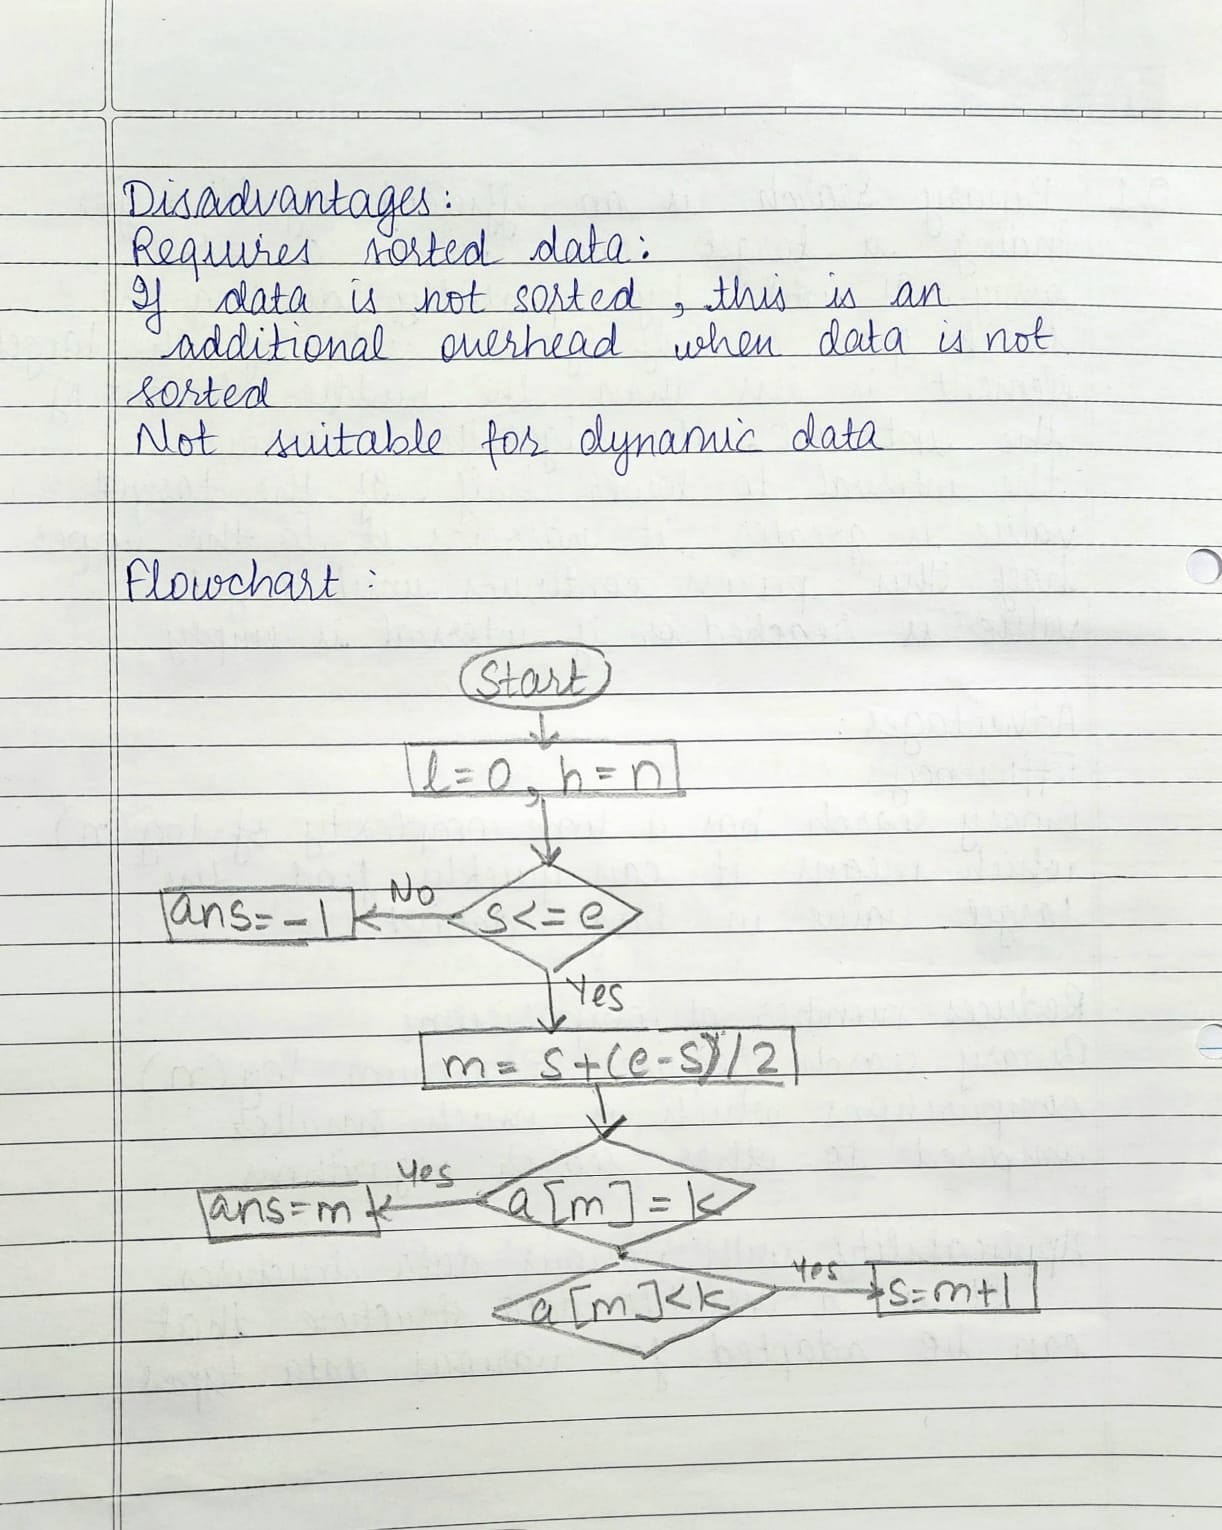 Disadvantages:
Requires sorted data:
If data is not sorted, this is an
additional overhead when data is not
sorted
Not suitable for dynamic data
Flowchart:
Start
l=0, h=n
No
ans=-1
s<=e
Yes
m= s+(e-s)/2
Yes
ans=m
a[m]=k
Yes
a[m]<k
s=m+1